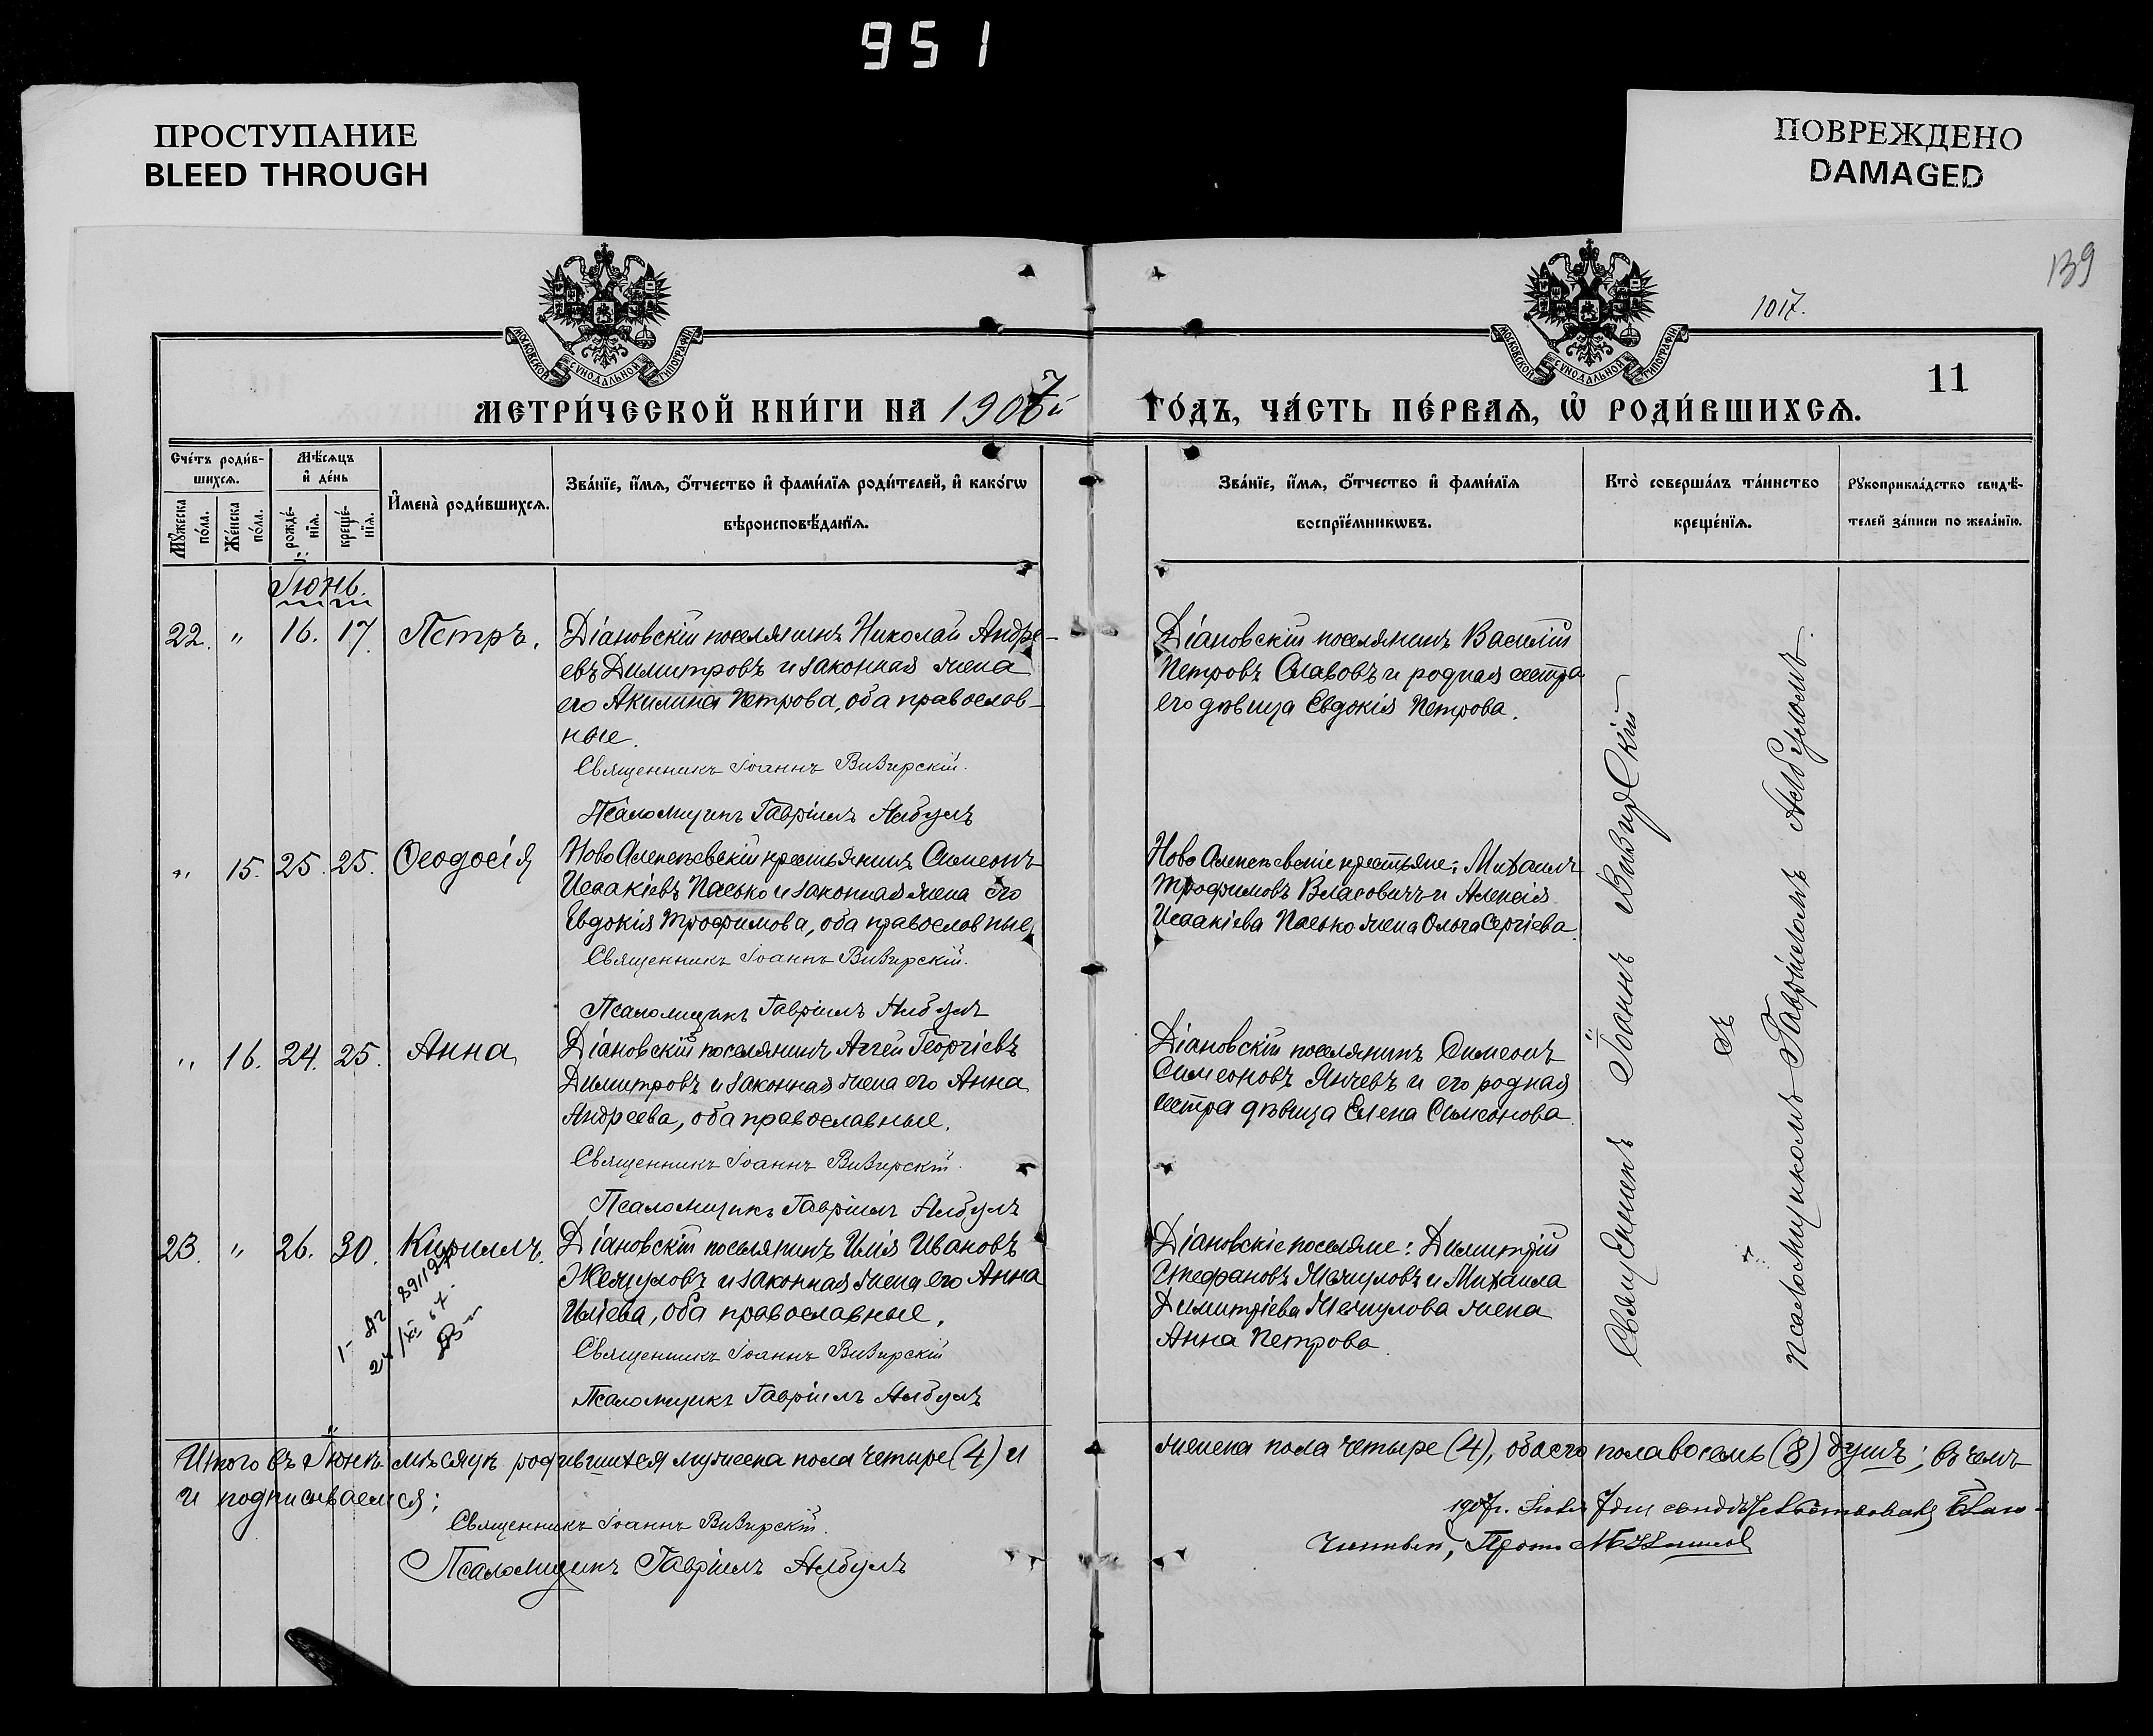 951
ПРОСТУПАНИЕ
BLEED THROUGH
ПОВРЕЖДЕНО
DAMAGED
139
1017.
МОСКОВСКОЙ СУНОДАЛЬНОЙ ТИПОГРАФИ
МОСКОВСКОЙ СУНОДАЛЬНОЙ ТИПОГРАФИ
11
МЕТРИ́ЧЕСКОЙ КНИ́ГИ НА 1907й ГО́ДЪ, ЧА́СТЬ ПЕ́РВАЯ, Ѡ҆ РОДИ́ВШИХСЯ.
Сче́тъ роди́в-
шихся.
Мѣ́сяцъ
и҆ де́нь
Мꙋ́жеска
по́ла.
Же́нска
по́ла.
рожде́-
нїя.
креще́-
нїя.
И҆мена̀ роди́вшихся.
Зва́нїе, и҆́мя, ѻ҆́тчество и҆ фами́лїя роди́телей, и҆ како́гѡ
вѣроисповѣ́данїя.
Зва́нїе, и҆́мя, ѻ҆́тчество и҆ фами́лїя
воспрїе́мникѡвъ.
Кто̀ соверша́лъ та́инство
креще́нїя.
Рꙋкоприкла́дство свидѣ́-
телей за́писи по жела́нїю.
Іюнь.
22. " 16. 17. Петръ.
Діановскій поселянинъ Николай Андре-
евъ Димитровъ и законная жена
его Акилина Петрова, оба православ-
ные.
Священникъ Іоаннъ Визирскій.
Псаломщикъ Гавріилъ Албулъ
Діановскій поселянинъ Василій
Петровъ Славовъ и родная сестра
его дѣвица Евдокія Петрова.
" 15. 25. 25. Ѳеодосія
Ново Алексѣевскій крестьянинъ Симеонъ
Исаакіевъ Пасько и законная жена его
Евдокія Трофимова, оба православные
Священникъ Іоаннъ Визирскій.
Псаломщикъ Гавріилъ Албулъ
Ново Алексѣевскіе крестьяне: Михаилъ
Трофимовъ Власовичъ и Алексія
Исаакіева Пасько жена Ольга Сергіева.
" 16. 24. 25. Анна
Діановскій поселянинъ Аггей Георгіевъ
Димитровъ и законная жена его Анна
Андреева, оба православные.
Священникъ Іоаннъ Визирскій.
Псаломщикъ Гавріилъ Албулъ
Діановскій поселянинъ Симеонъ
Симеоновъ Янчевъ и его родная
сестра дѣвица Елена Симеонова.
23. " 26. 30. Кириллъ.
Діановскій поселянинъ Илія Ивановъ
Жечуловъ и законная жена его Анна
Иліева, оба православные.
Священникъ Іоаннъ Визирскій
Псаломщикъ Гавріилъ Албулъ
Діановскіе поселяне: Димитрій
Стефановъ Жечуловъ и Михаила
Димитріева Жечулова жена
Анна Петрова.
Священникъ Іоаннъ Визирскій
съ
псаломщикомъ Гавріиломъ Албуломъ.
Итого въ Іюнѣ мѣсяцѣ родившихся мужеска пола четыре (4) и
женска пола четыре (4), обоего пола восемь (8) душъ; въ чемъ
и подписываемся:
Священникъ Іоаннъ Визирскій.
Псаломщикъ Гавріилъ Албулъ
1907г. 7 дня свидѣтельствовалъ Благо-
чинный, Прот.